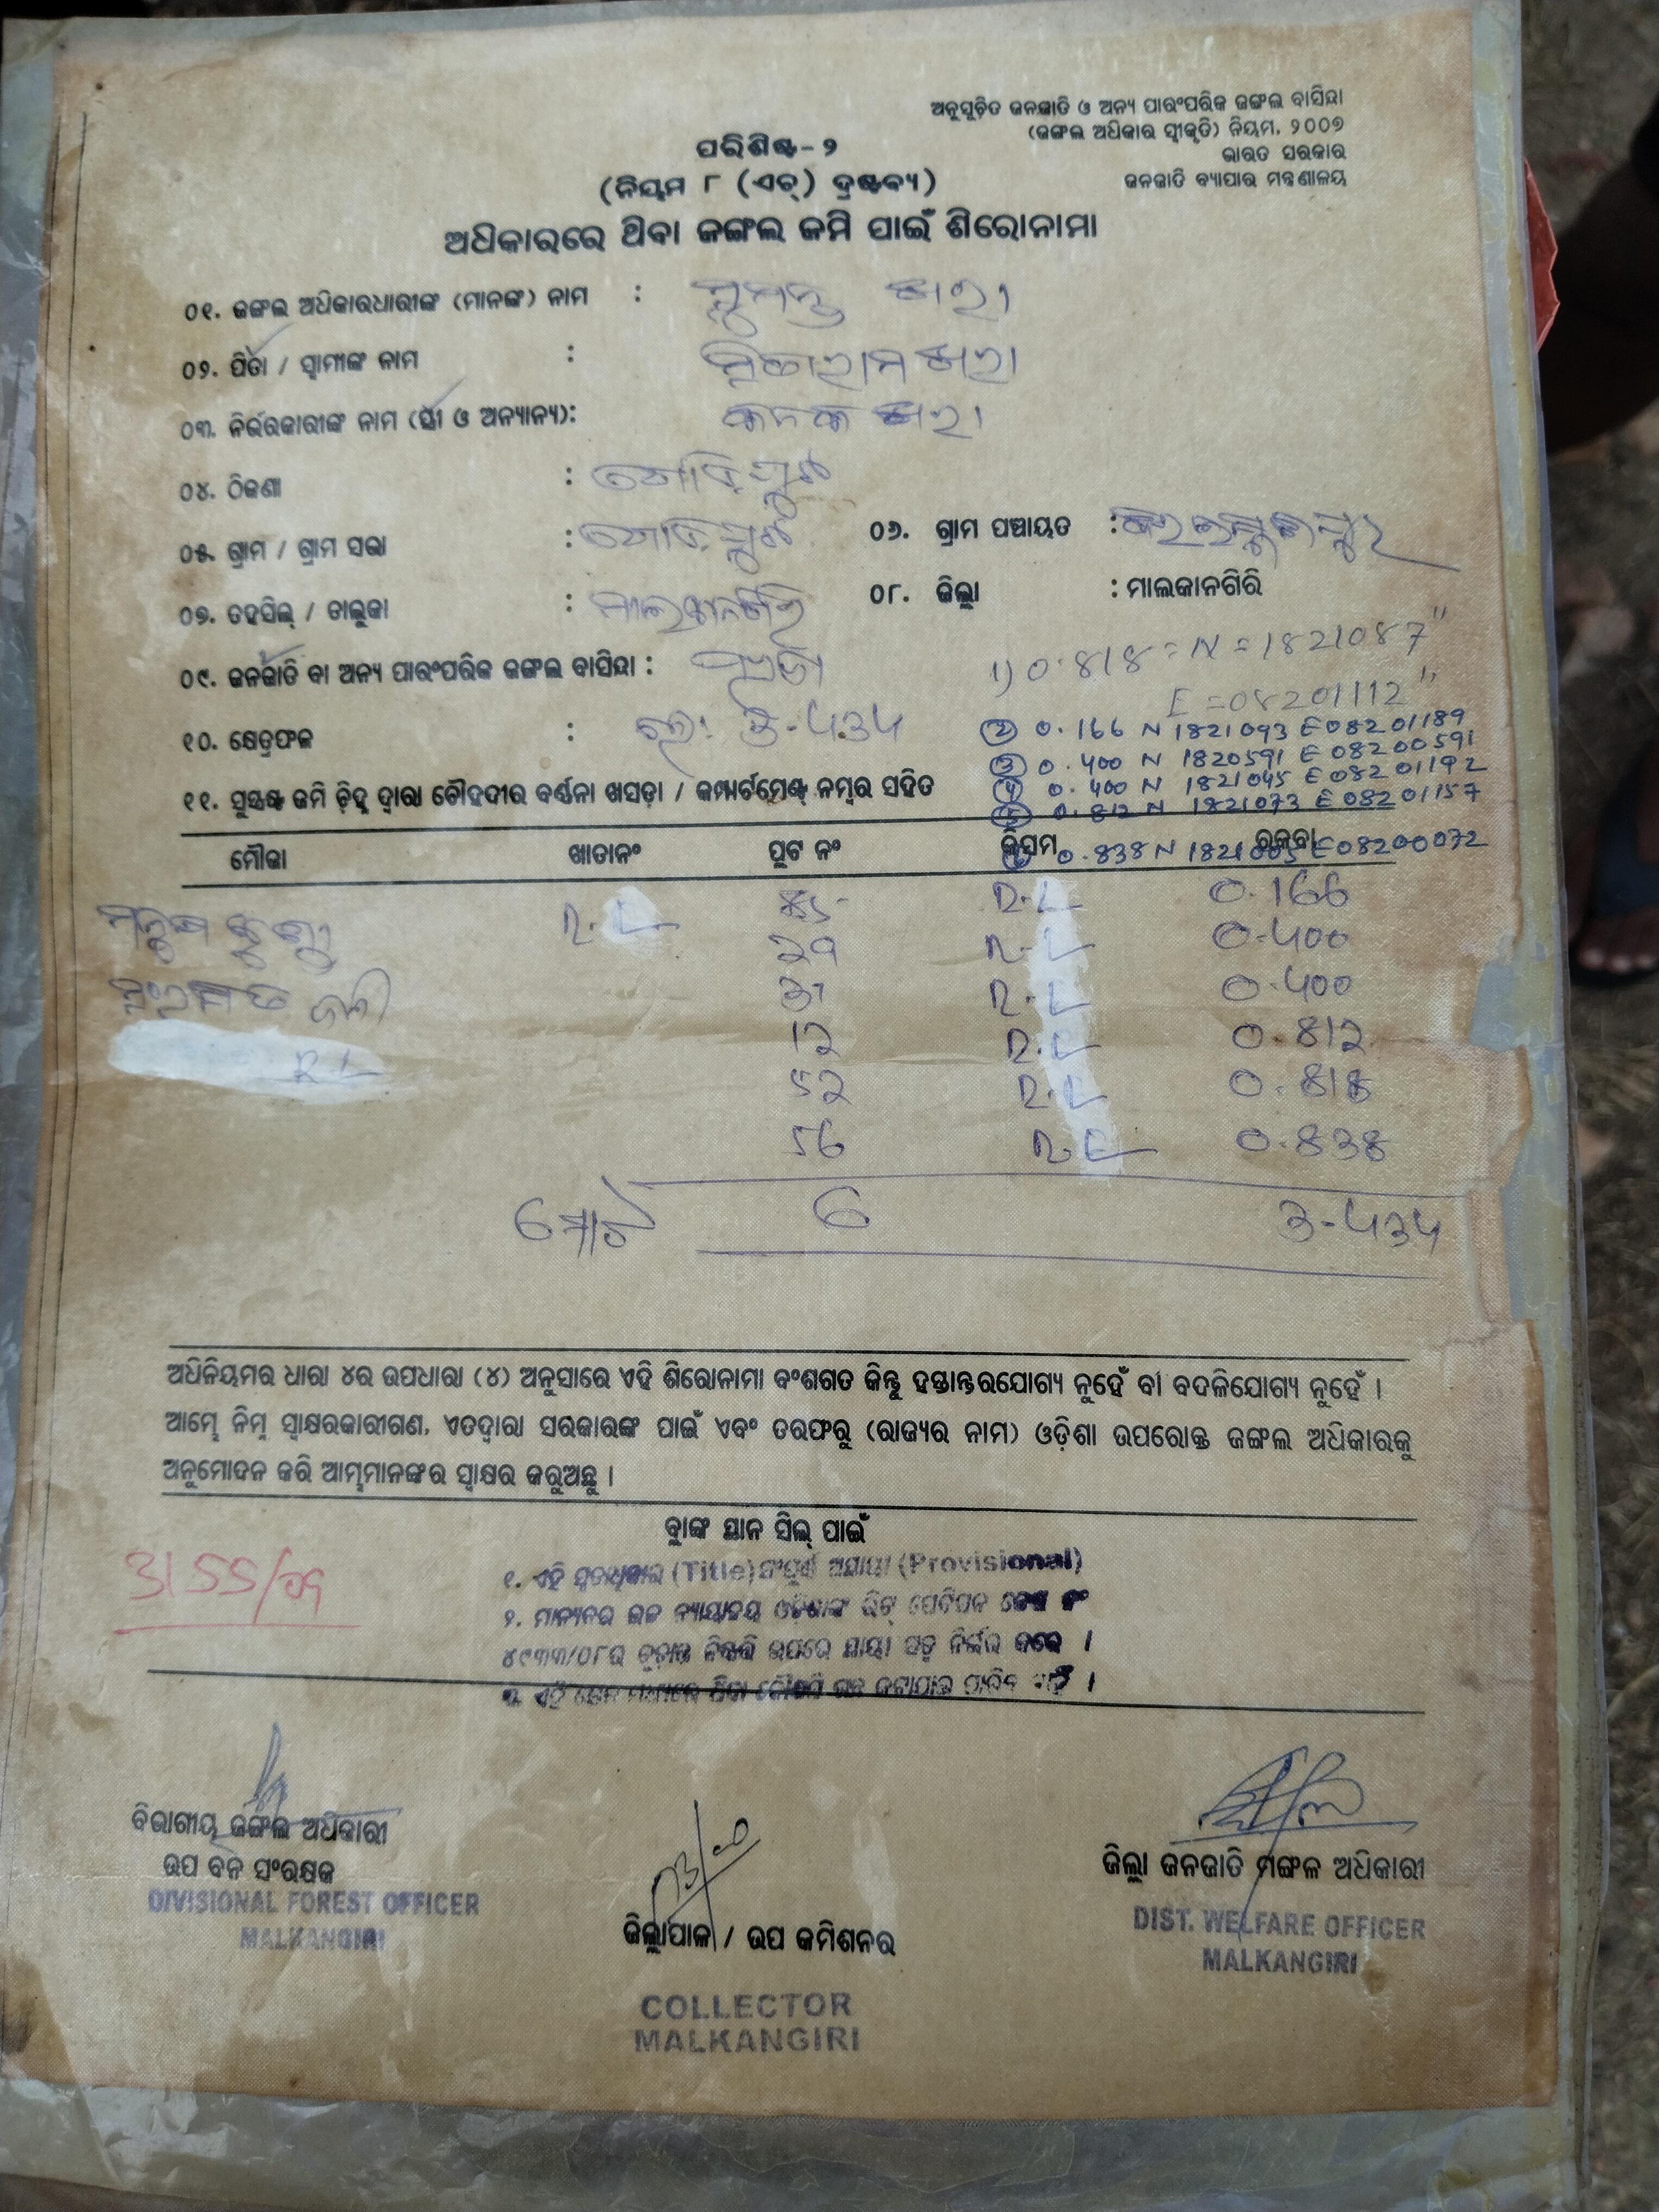 ଅନୁସୂଚିତ ଜନଜାତି ଓ ଅନ୍ୟ ପାରଂପରିକ ଜଙ୍ଗଲ ବାସିନ୍ଦା
(ଜଙ୍ଗଲ ଅଧିକାର ସ୍ୱୀକୃତି) ନିୟମ, ୨୦୦୭
ଭାରତ ସରକାର
ଜନଜାତି ବ୍ୟାପାର ମନ୍ତ୍ରଣାଳୟ
ପରିଶିଷ୍ଟ-୨
(ନିୟମ ୮ (ଏଚ୍) ଦ୍ରଷ୍ଟବ୍ୟ)
ଅଧିକାରରେ ଥିବା ଜଙ୍ଗଲ ଜମି ପାଇଁ ଶିରୋନାମା
୦୧. ଜଙ୍ଗଲ ଅଧିକାରଧାରୀଙ୍କ (ମାନଙ୍କ) ନାମ :
୦୨. ପିତା / ସ୍ୱାମୀଙ୍କ ନାମ :
୦୩. ନିର୍ଭରକାରୀଙ୍କ ନାମ (ସ୍ତ୍ରୀ ଓ ଅନ୍ୟାନ୍ୟ):
୦୪. ଠିକଣା :
୦୫. ଗ୍ରାମ / ଗ୍ରାମ ସଭା : ୦୬. ଗ୍ରାମ ପଞ୍ଚାୟତ :
୦୭. ତହସିଲ୍ / ତାଲୁକା : ମାଲକାନଗିରି ୦୮. ଜିଲ୍ଲା : ମାଲକାନଗିରି
୦୯. ଜନଜାତି ବା ଅନ୍ୟ ପାରଂପରିକ ଜଙ୍ଗଲ ବାସିନ୍ଦା :
1) 0.818 = N = 1821087"
E = 08201112"
୧୦. କ୍ଷେତ୍ରଫଳ : 3-434
② 0.166 N 1821093 E 08201189
③ 0.400 N 1820591 E 08200591
④ 0.400 N 1821045 E 08201192
୧୧. ସୁସ୍ପଷ୍ଟ ଜମି ଚିହ୍ନ ଦ୍ୱାରା ଚୌହଦୀର ବର୍ଣ୍ଣନା ଖସଡ଼ା / କମ୍ପାର୍ଟମେଣ୍ଟ ନମ୍ବର ସହିତ
⑤ 0.812 N 1821073 E 08201157
0.838 N 1821005 E 08200072
ମୌଜା ଖାତାନଂ ପ୍ଲଟ ନଂ କିସମ ରକବା
R.L 85 R.L 0.166
29 R.L 0.400
31 R.L 0.400
R L 12 R.L 0.812
52 R.L 0.818
56 R.L 0.838
ମୋଟ 6 3-434
ଅଧିନିୟମର ଧାରା ୪ର ଉପଧାରା (୪) ଅନୁସାରେ ଏହି ଶିରୋନାମା ବଂଶଗତ କିନ୍ତୁ ହସ୍ତାନ୍ତରଯୋଗ୍ୟ ନୁହେଁ ବା ବଦଳିଯୋଗ୍ୟ ନୁହେଁ ।
ଆମ୍ଭେ ନିମ୍ନ ସ୍ୱାକ୍ଷରକାରୀଗଣ, ଏତଦ୍ୱାରା ସରକାରଙ୍କ ପାଇଁ ଏବଂ ତରଫରୁ (ରାଜ୍ୟର ନାମ) ଓଡ଼ିଶା ଉପରୋକ୍ତ ଜଙ୍ଗଲ ଅଧିକାରକୁ
ଅନୁମୋଦନ କରି ଆମ୍ଭମାନଙ୍କର ସ୍ୱାକ୍ଷର କରୁଅଛୁ ।
ବ୍ଲାଙ୍କ ସ୍ଥାନ ସିଲ୍ ପାଇଁ
3155/09
୧. ଏହି (Title) ସଂପୂର୍ଣ୍ଣ ଅସ୍ଥାୟୀ (Provisional)
୨. ମାନ୍ୟବର ଉଚ୍ଚ ନ୍ୟାୟାଳୟ ଓଡ଼ିଶାଙ୍କ ରିଟ୍ ପେଟିସନ କେସ ନଂ
୪୯୩୩/୦୮ର ଚୂଡ଼ାନ୍ତ ନିଷ୍ପତ୍ତି ଉପରେ ସ୍ଥାୟୀ ସତ୍ତ୍ୱ ନିର୍ଭର କରେ ।
ବିଭାଗୀୟ ଜଙ୍ଗଲ ଅଧିକାରୀ
ଉପ ବନ ସଂରକ୍ଷକ
DIVISIONAL FOREST OFFICER
MALKANGIRI
ଜିଲ୍ଲାପାଳ / ଉପ କମିଶନର
COLLECTOR
MALKANGIRI
ଜିଲ୍ଲା ଜନଜାତି ମଙ୍ଗଳ ଅଧିକାରୀ
DIST. WELFARE OFFICER
MALKANGIRI